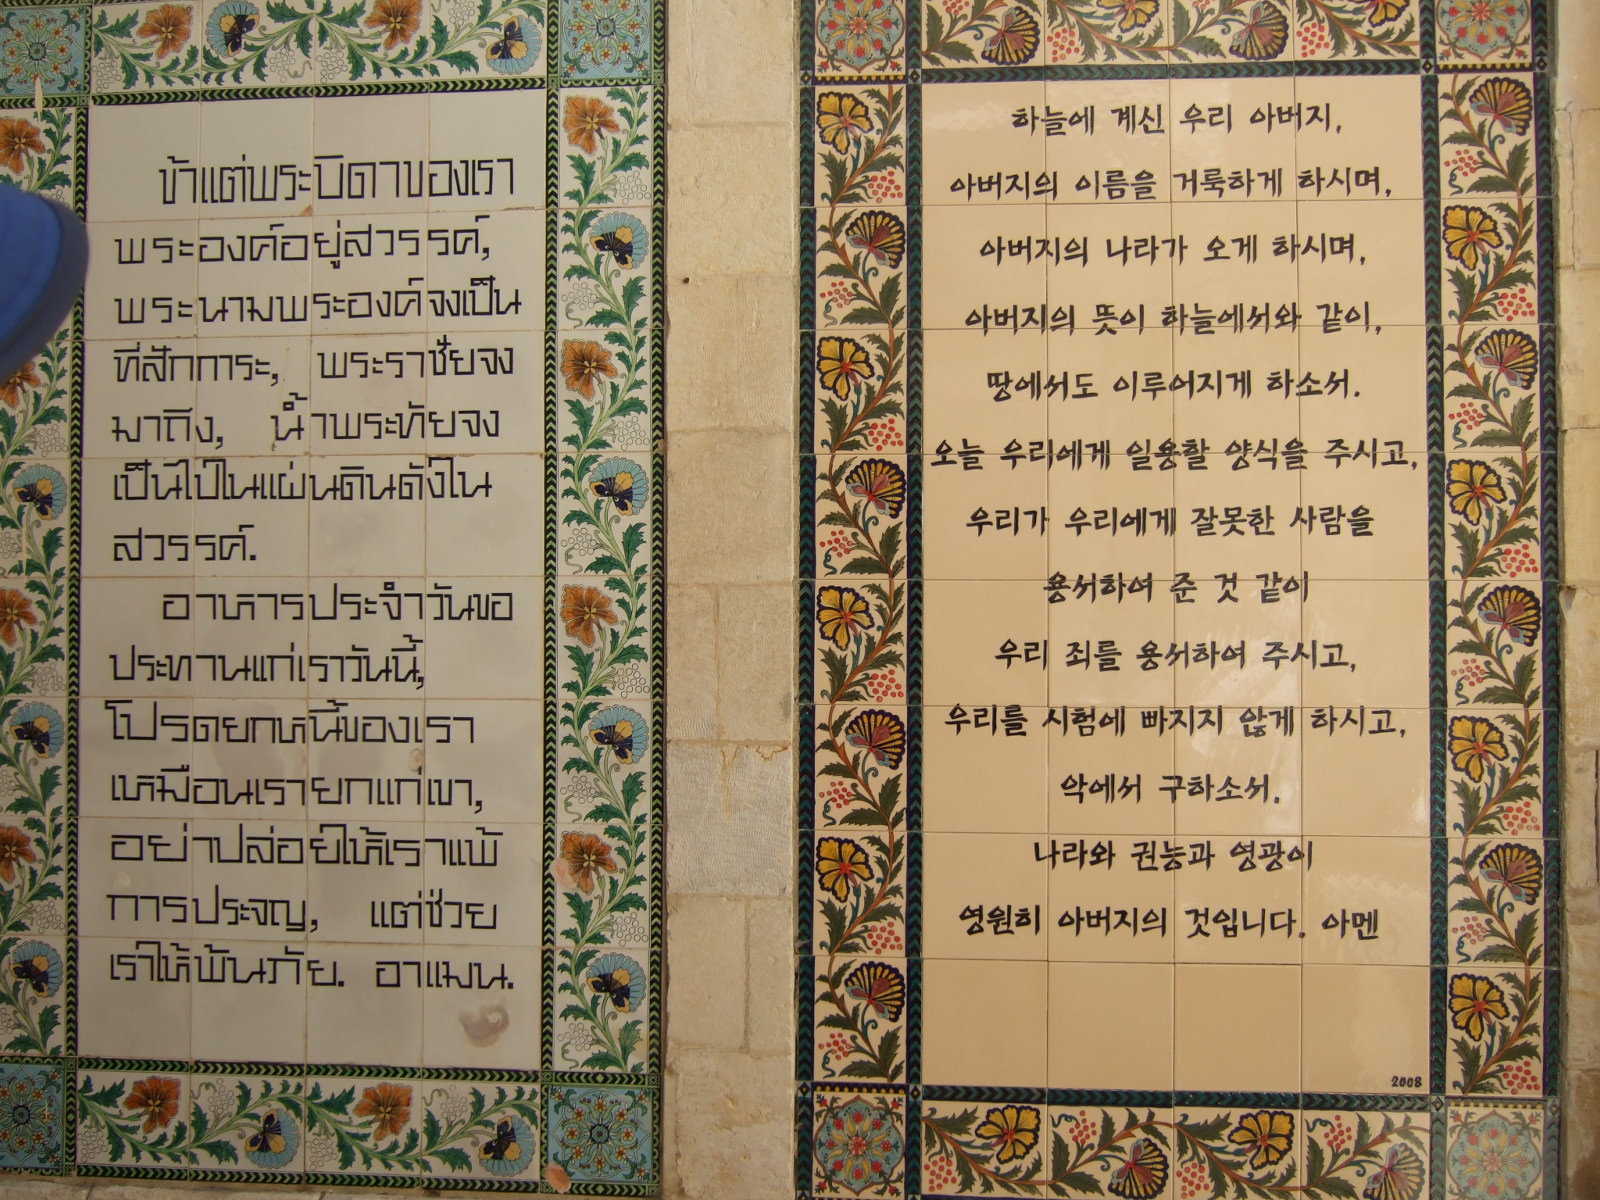 ข้าแต่พระบิดาของเรา
พระองค์อยู่สวรรค์,
พระนามพระองค์จงเป็น
ที่สักการะ, พระราชัยจง
มาถึง, น้ำพระทัยจง
เป็นไปในแผ่นดินดังใน
สวรรค์.
อาหารประจำวันขอ
ประทานแก่เราวันนี้,
โปรดยกหนี้ของเรา
เหมือนเรายกแก่เขา,
อย่าปล่อยให้เราแพ้
การประจญ, แต่ช่วย
เราให้พ้นภัย. อาแมน.
하늘에 계신 우리 아버지,
아버지의 이름을 거룩하게 하시며,
아버지의 나라가 오게 하시며,
아버지의 뜻이 하늘에서와 같이,
땅에서도 이루어지게 하소서.
오늘 우리에게 일용할 양식을 주시고,
우리가 우리에게 잘못한 사람을
용서하여 준 것 같이
우리 죄를 용서하여 주시고,
우리를 시험에 빠지지 않게 하시고,
악에서 구하소서.
나라와 권능과 영광이
영원히 아버지의 것입니다. 아멘
2008